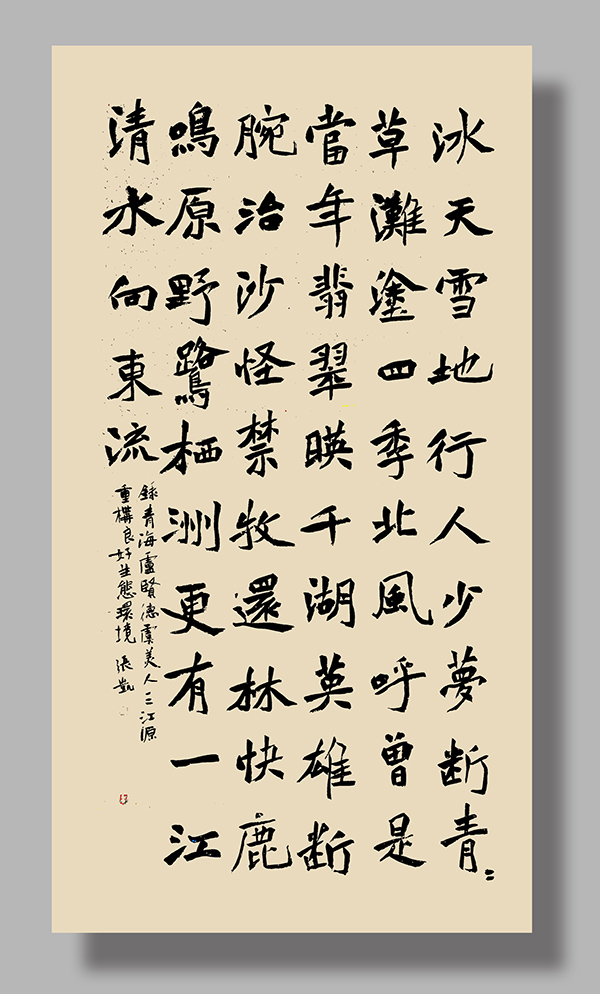 冰天雪地行人少夢断青〻
草灘塗四季北風呼曾是
當年翡翠暎千湖英雄断
腕治沙怪禁牧還林快鹿
鳴原野鷺栖洲更有一江
清水向東流
録青海盧賢德虞美人三江源
重構良好生態環境 張凱